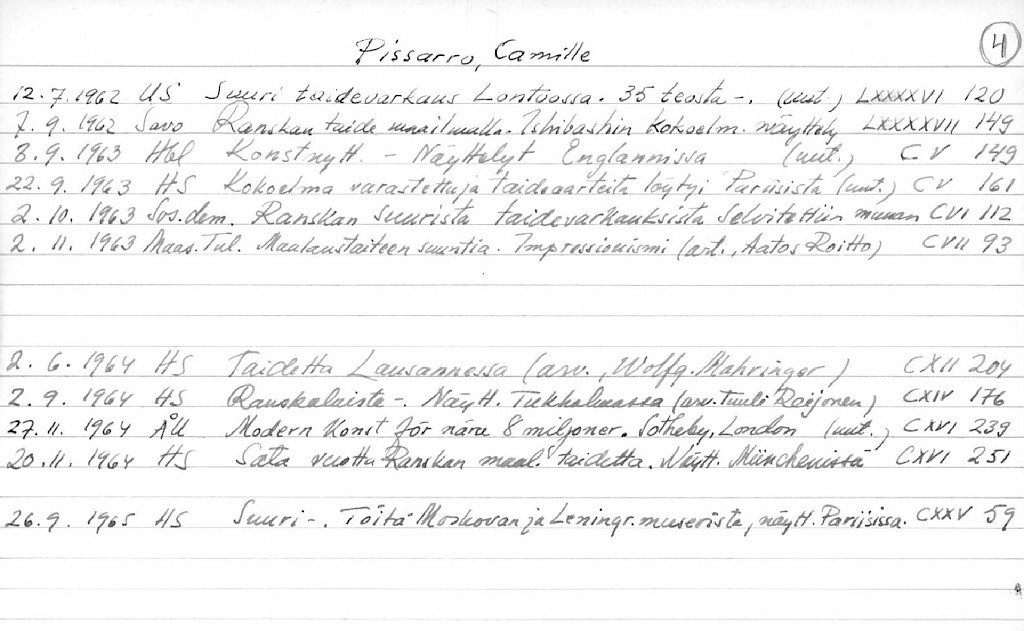 4
Pissarro, Camille
12.7.1962 US Suuri taidevarkaus Lontoossa. 35 teosta -. (uut.) LXXXXVI 120
7.9.1962 Savo Ranskan taide maailmalla. Ishibashin kokoelm. näyttely LXXXXVII 149
8.9.1963 Hbl Konstnytt. - Näyttelyt Englannissa (uut.) CV 149
22.9.1963 HS Kokoelma varastettuja taideaarteita löytyi Pariisista (uut.) CV 161
2.10.1963 Sos.dem. Ranskan suurista taidevarkauksista selvitettiin muuan CVI 112
2.11.1963 Maas.Tul. Maalaustaiteen suuntia. Impressionismi (art., Aatos Roitto) CVII 93
2.6.1964 HS Taidetta Lausannessa (arv., Wolfg. Mahringer) CXII 204
2.9.1964 HS Ranskalaista -. Näytt. Tukholmassa (arv. Tuuli Reijonen) CXIV 176
27.11.1964 ÅU Modern Konst för nära 8 miljoner. Sotheby, London (uut.) CXVI 239
20.11.1964 HS Sata vuotta Ranskan maal. taidetta. Näytt. Münchenissä CXVI 251
26.9.1965 HS Suuri -. Töitä Moskovan ja Leningr. museoista, näytt. Pariisissa. CXXV 59